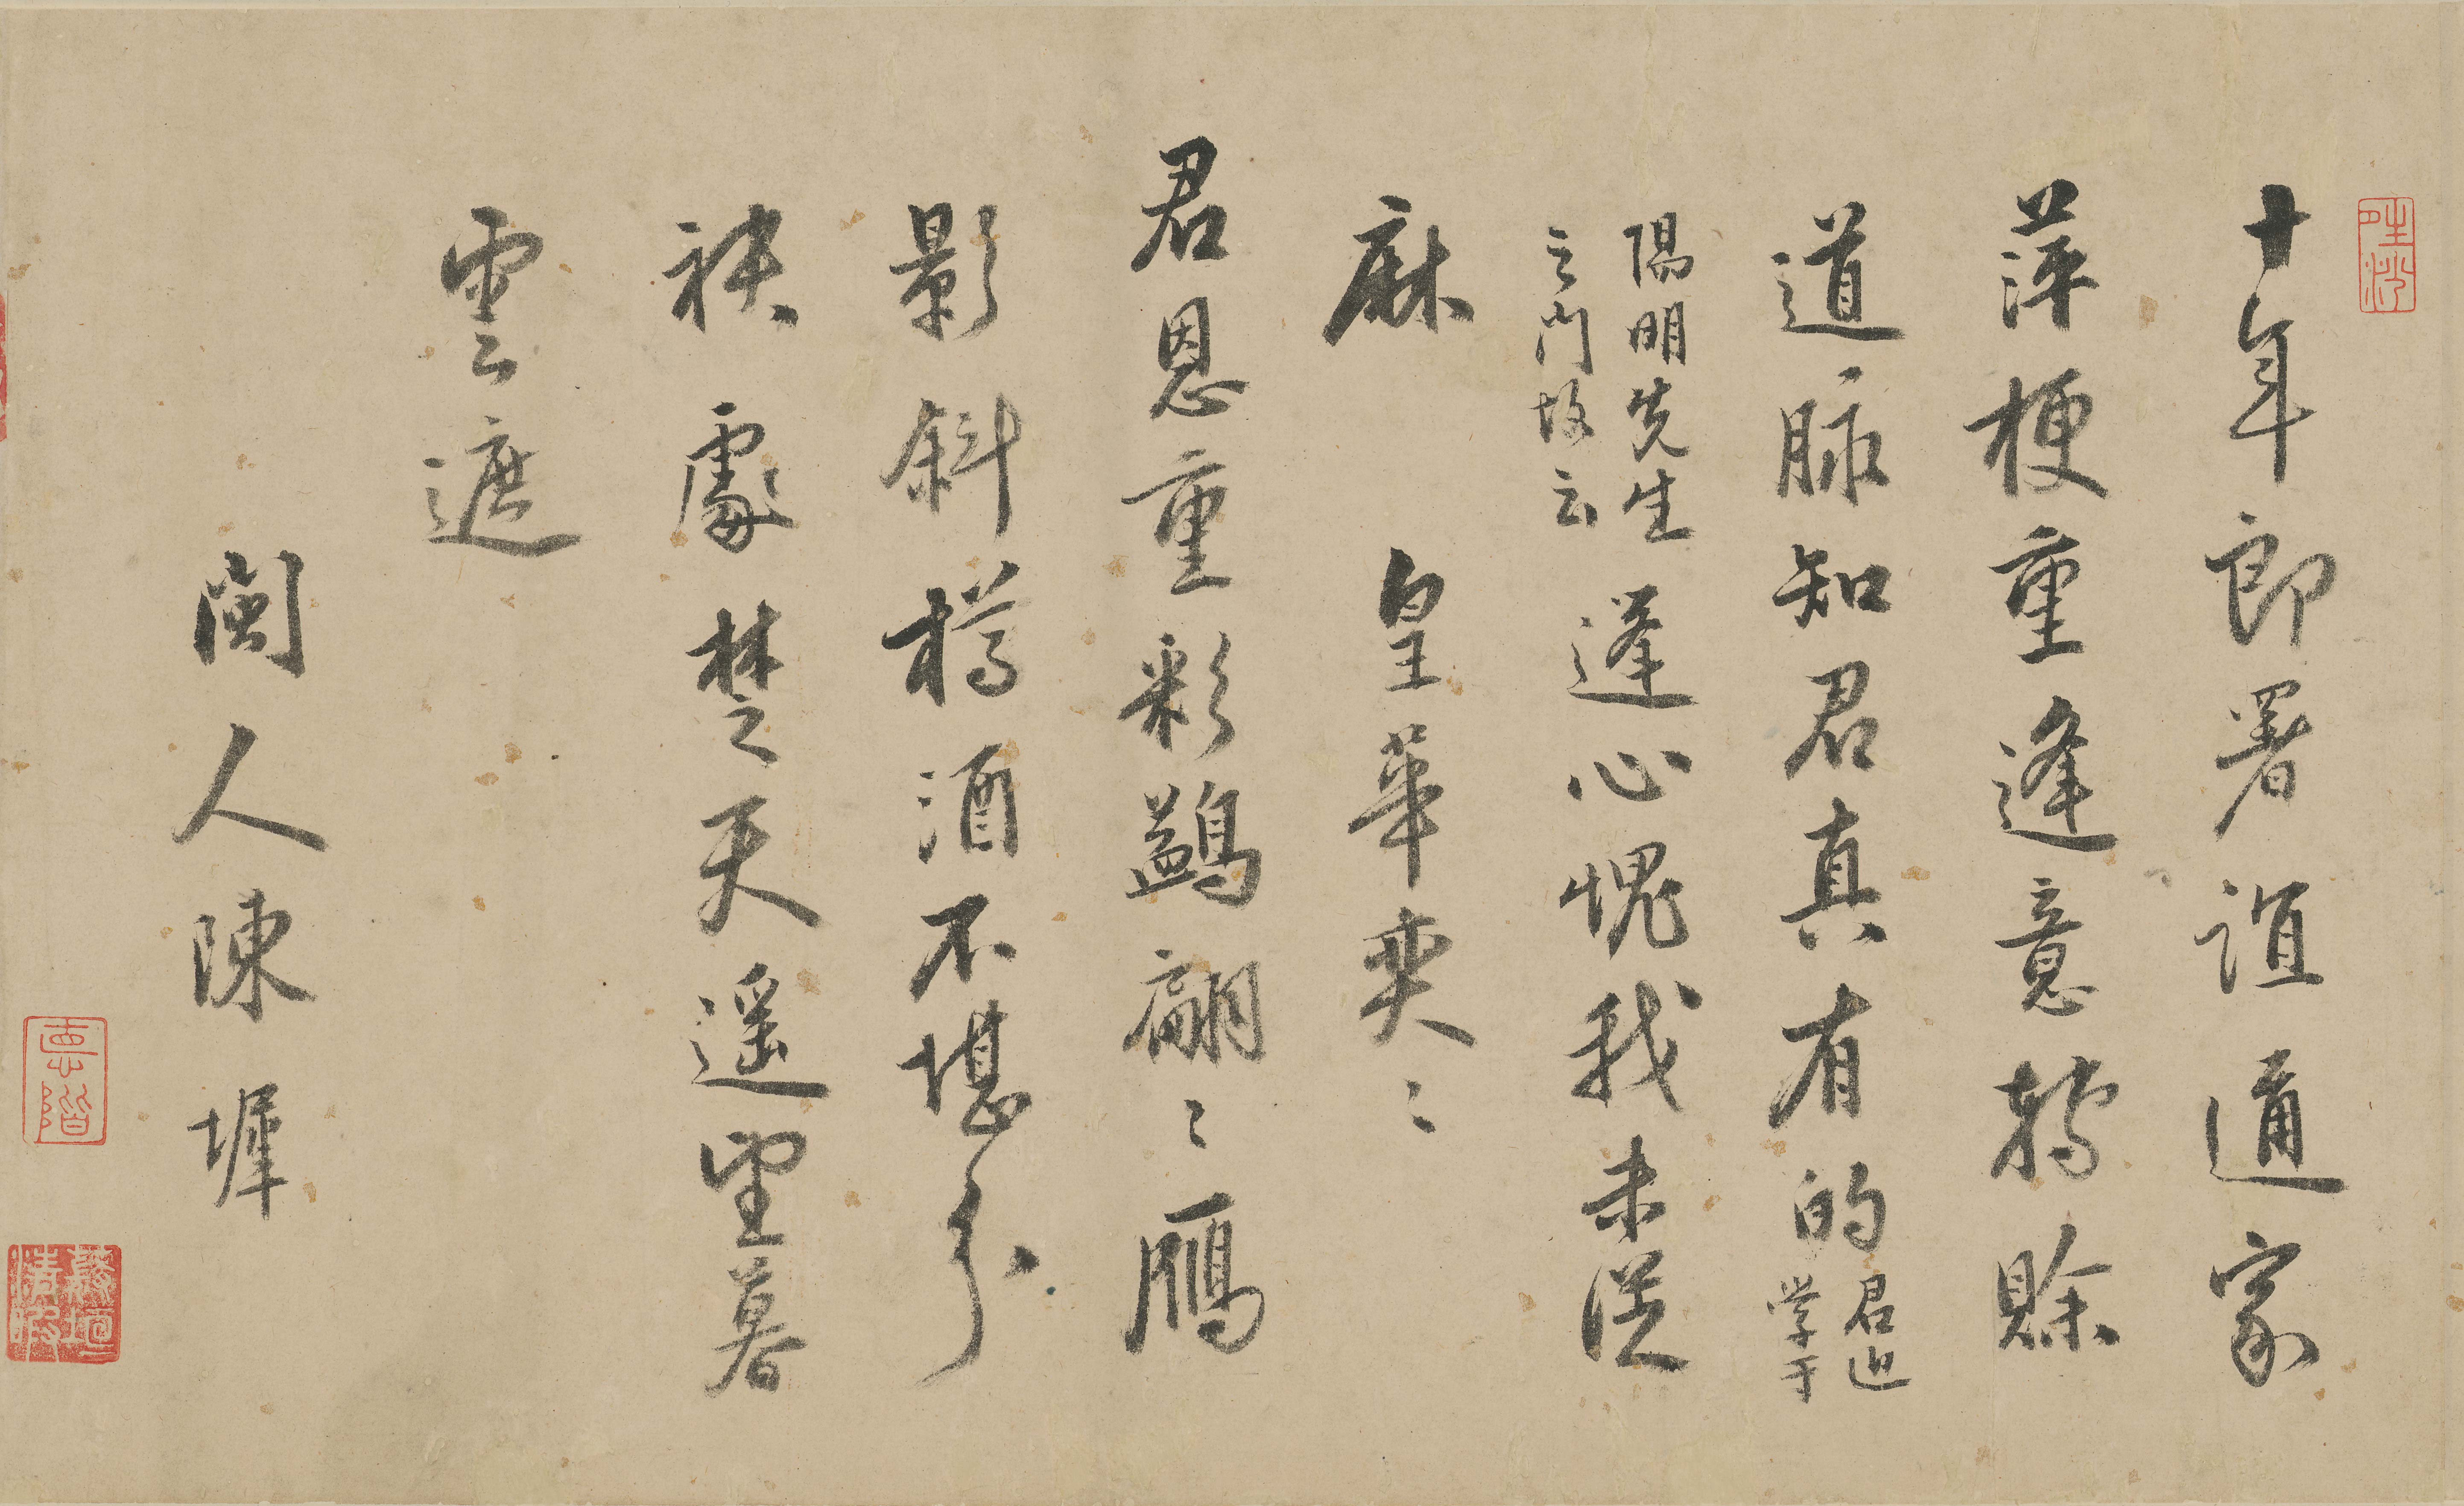 十年郎署誼通家
萍梗重逢意轉賒
道脉知君真有的君近学于
陽明先生之門故云蓬心愧我未從
麻 皇華奕〻
君恩重彩鷁翩〻鴈
影斜樽酒不堪分
袂處楚天遥望暮
雲遮
閩人陳墀
惠階